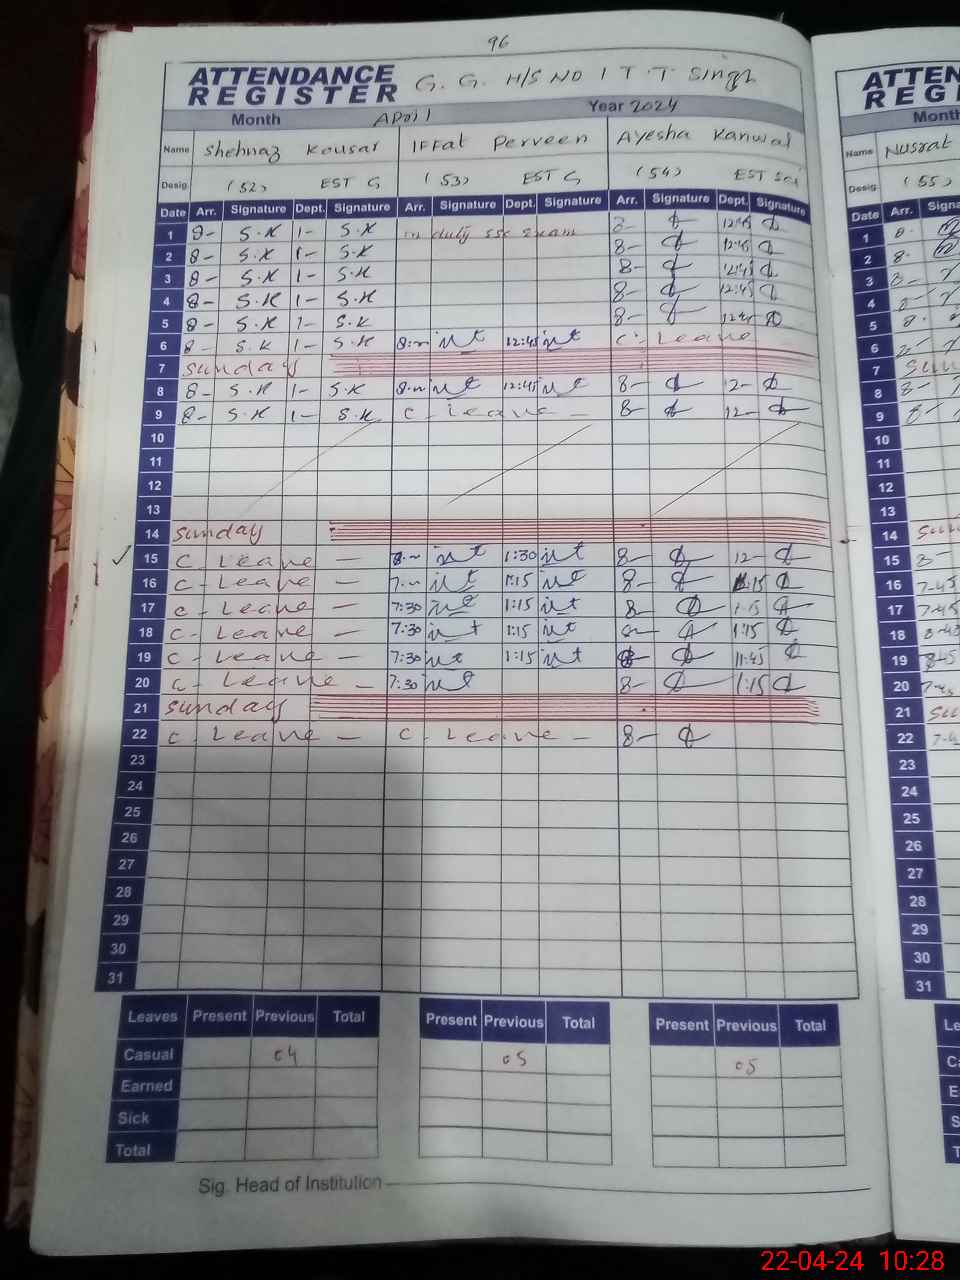 96
ATTENDANCE REGISTER G. G. H/S NO 1 T.T. Singh
Month April Year 2024
Name Shehnaz Kousar IFFat Perveen Ayesha Kanwal
Desig. (52) EST G (53) EST G (54) EST Sci
Date Arr. Signature Dept. Signature Arr. Signature Dept. Signature Arr. Signature Dept. Signature
1 8- S.K 1- S.K on duty ssc exam 8- 12:45
2 8- S.K 1- S.K 8- 12:45
3 8- S.K 1- S.K 8- 12:45
4 8- S.K 1- S.K 8- 12:45
5 8- S.K 1- S.K 8- 12:45
6 8- S.K 1- S.K 8:- 12:45 C- Leave
7 Sunday
8 8- S.K 1- S.K 8:- 12:45 8- 12-
9 8- S.K 1- S.K C- Leave - 8- 12-
10
11
12
13
14 Sunday
15 C- Leave - 8:- 1:30 8- 12-
16 C- Leave - 7:- 1:15 8- 1:15
17 C- Leave - 7:30 1:15 8- 1:15
18 C- Leave - 7:30 1:15 8- 1:15
19 C- Leave - 7:30 1:15 8- 11:45
20 C- Leave - 7:30 8- 1:15
21 Sunday
22 C- Leave - C- Leave - 8-
23
24
25
26
27
28
29
30
31
Leaves Present Previous Total Present Previous Total Present Previous Total
Casual 04 05 05
Earned
Sick
Total
Sig. Head of Institution
ATTEN
REGI
Month
Name Nusrat
Desig. (55)
Date Arr. Signa
1 8-
2 8-
3 8-
4 8-
5 8-
6
7 Sun
8 8-
9 8-
10
11
12
13
14 Sun
15 8-
16 7-45
17 7-45
18 8-45
19 8-45
20 7-45
21 Su
22 7-4
23
24
25
26
27
28
29
30
31
Le
Ca
E
S
T
22-04-24 10:28